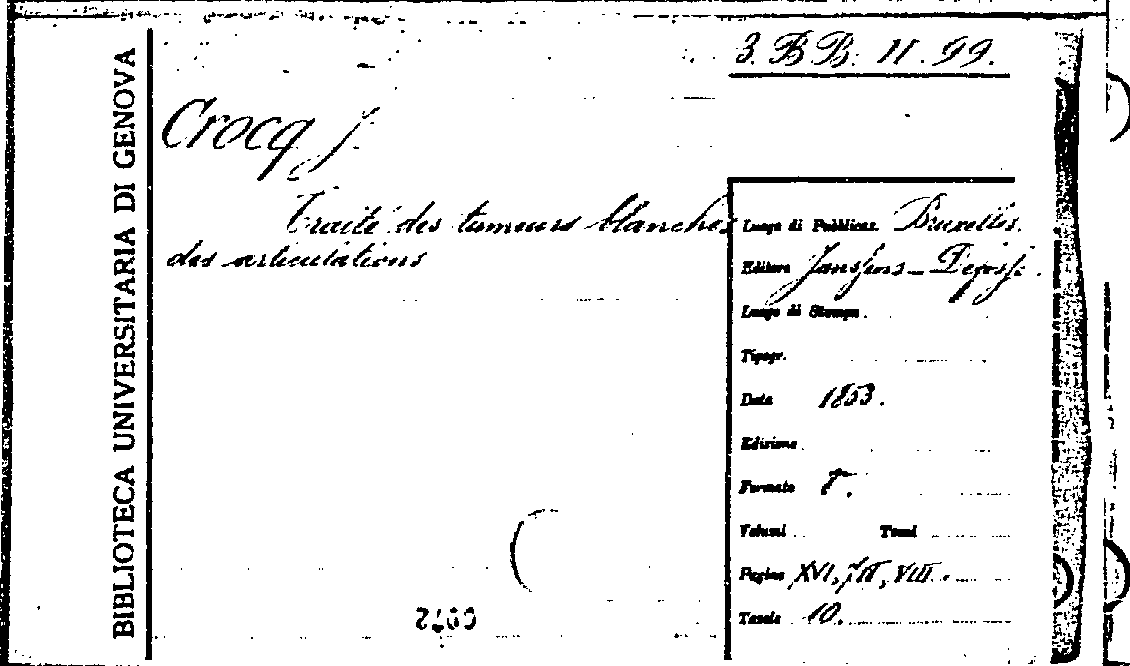 BIBLIOTECA UNIVERSITARIA DI GENOVA
3. BB. II. 99.
Crocq J.
Traité des tumeurs blanches
des articulations
Luogo di Pubblicaz. Bruxelles.
Editore
Luogo di Stampa
Tipogr.
Data 1853.
Edizione
Formato 8°.
Volumi Tomi
Pagine XVI, VIII.
Tavole 10.